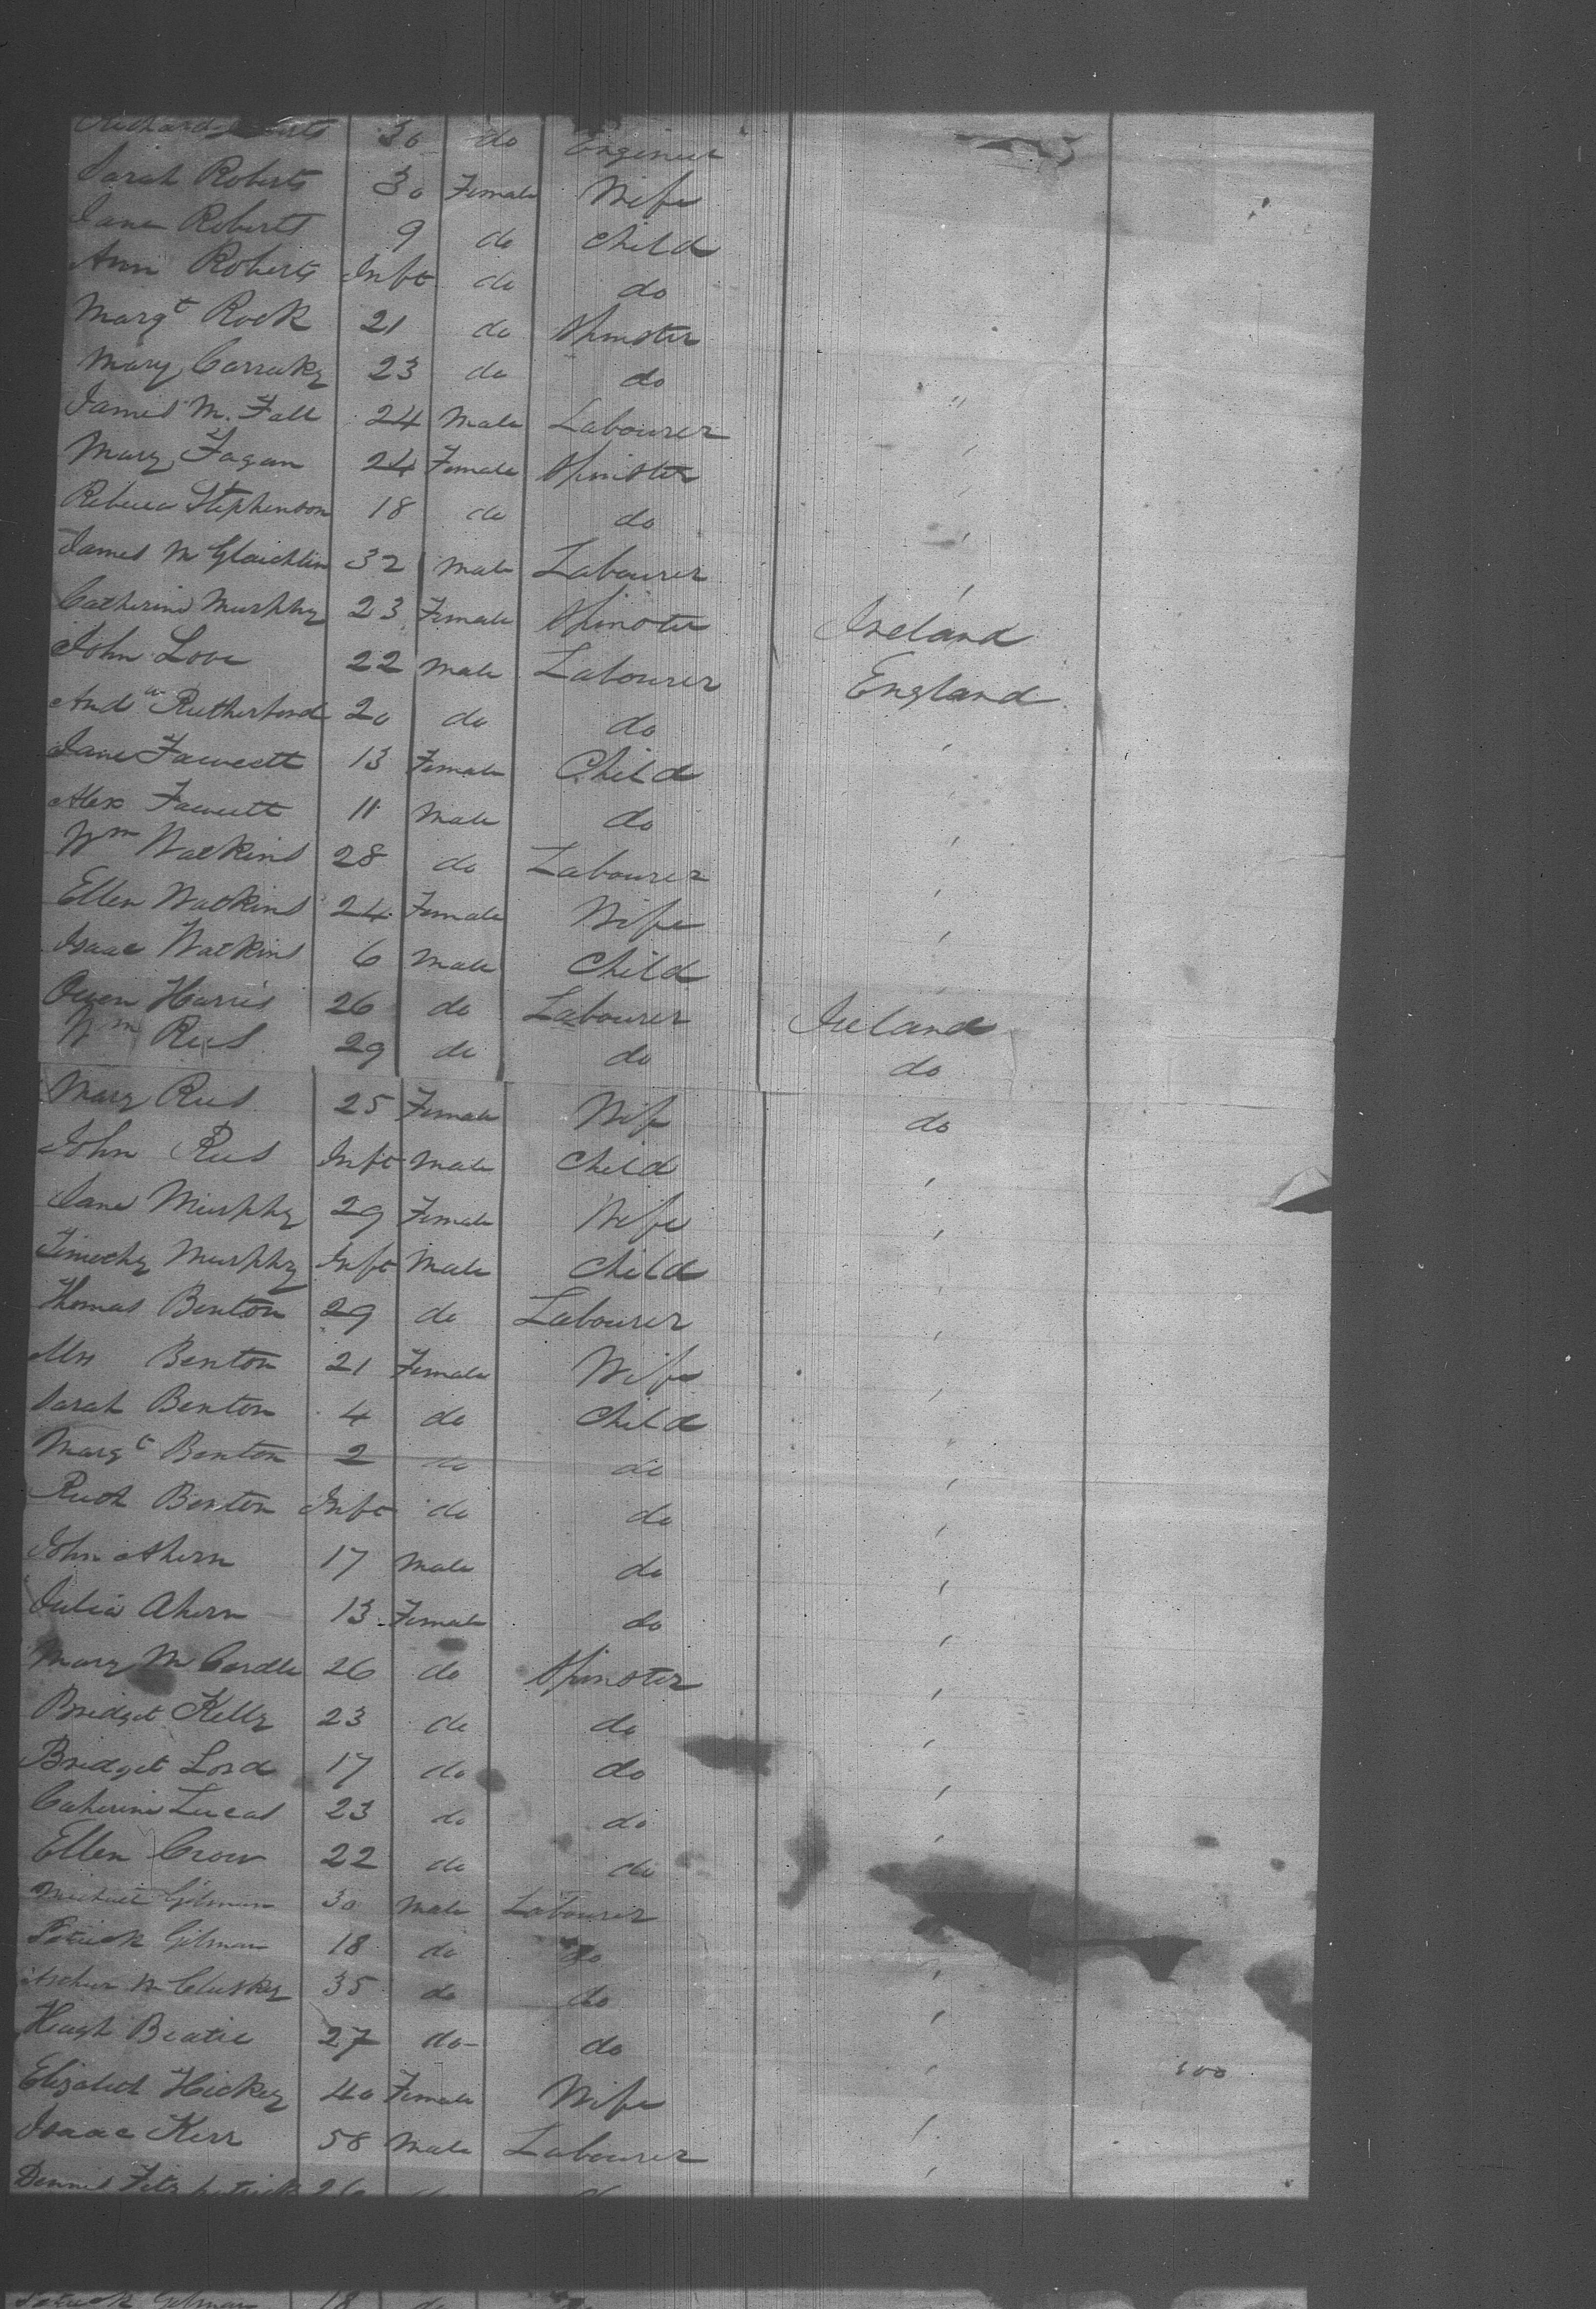 Richard 30 do Engineer
Sarah Roberts 30 Female Wife
Jane Roberts 9 do Child
Ann Roberts Inft do do
Margt Rock 21 do Spinster
Mary 23 do do "
James M. Fall 24 Male Labourer
Mary Fagan 24 Female Spinster
Rebecca Stephenson 18 do do
James Mc Glaichlin 32 Male Labourer
Catherine Murphy 23 Female Spinster Ireland
John Love 22 Male Labourer England
Andw Rutherford 20 do do
Jane Fawcett 13 Female Child
Alex Fawcett 11 Male do
Wm Watkins 28 do Labourer
Ellen Watkins 24 Female Wife
Isaac Watkins 6 Male Child
Owen Harris 26 do Labourer Ireland
Wm Rees 29 do do do
Mary Rees 25 Female Wife do
John Rees Inft Male Child
Jane Murphy 29 Female Wife
Timothy Murphy Inft Male Child
Thomas Benton 29 do Labourer
Mrs Benton 21 Female Wife
Sarah Benton 4 do Child
Margt Benton 2 do do
Ruth Benton Inft do do
John Ahern 17 Male do
Julia Ahern 13 Female do
Mary Mc Cardle 26 do Spinster
Bridget Kelly 23 do do
Bridget Lord 17 do do
Catherine Lucas 23 do do
Ellen Crow 22 do do
Michael Gilman 30 Male Labourer
Patrick Gilman 18 do do
Mc Cluskey 35 do do
Hugh Beatie 27 do do
Elizabeth Hickey 40 Female Wife
Isaac Kerr 58 Male Labourer
Dennis Fitzpatrick 26 do
Patrick Gilman 18 do